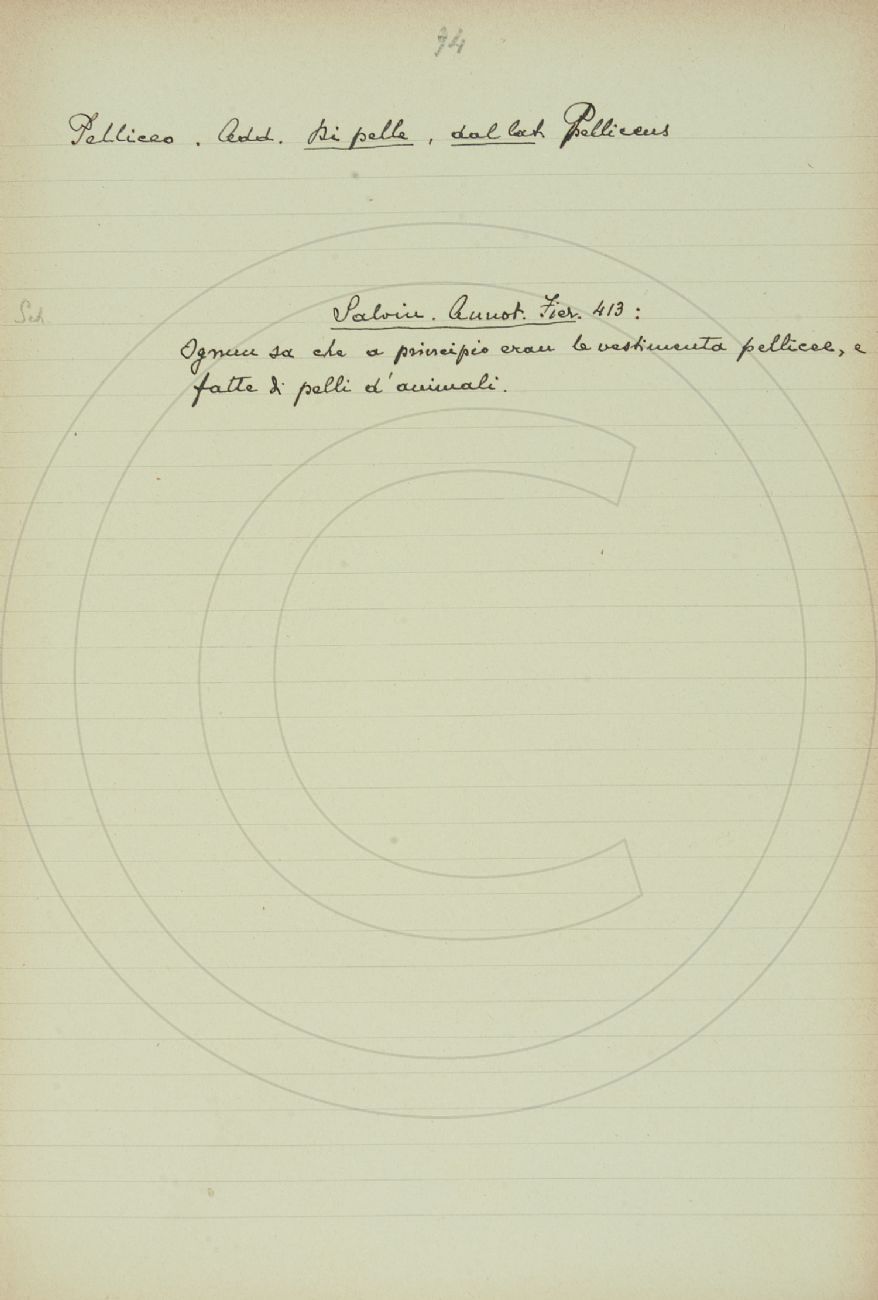 74
Pelliceo. Add. Di pelle, dal lat. Pelliceus
Salvin. Annot. Fier. 413:
Ognun sa che a principio eran le vestimenta pellicee, e
fatte di pelli d'animali.